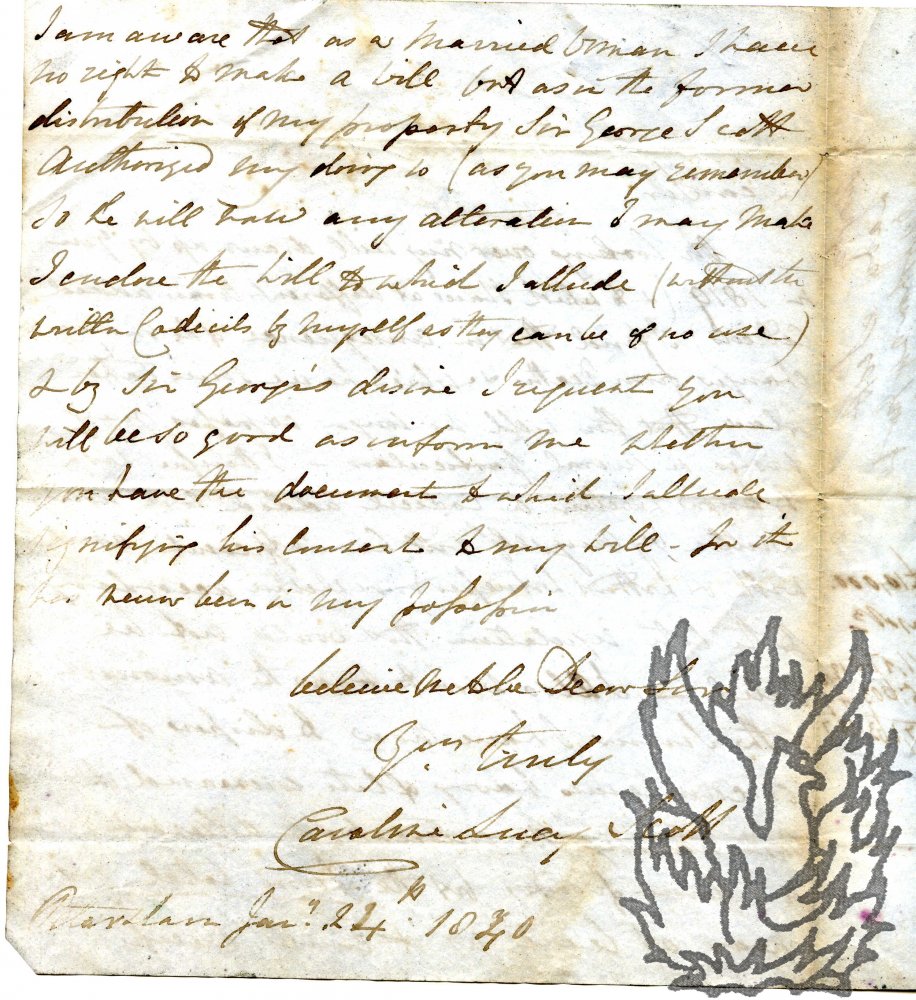 I am aware that as a Married Woman I have
no right to make a Will but as in the former
distribution of my property Sir George Scott
Authorized my doing so (as you may remember)
So he will now any alteration I may Make
I enclose the Will to which I allude (without the
written Codicils by Myself as they can be of no use)
& by Sir George's desire I request you
will be so good as inform me whether
you have the document to which I allude
signifying his Consent to my Will - for it
has never been in my possession
believe me to be Dear Sir
Yrs truly
Caroline Lucy Scott
Jany. 24th 1830